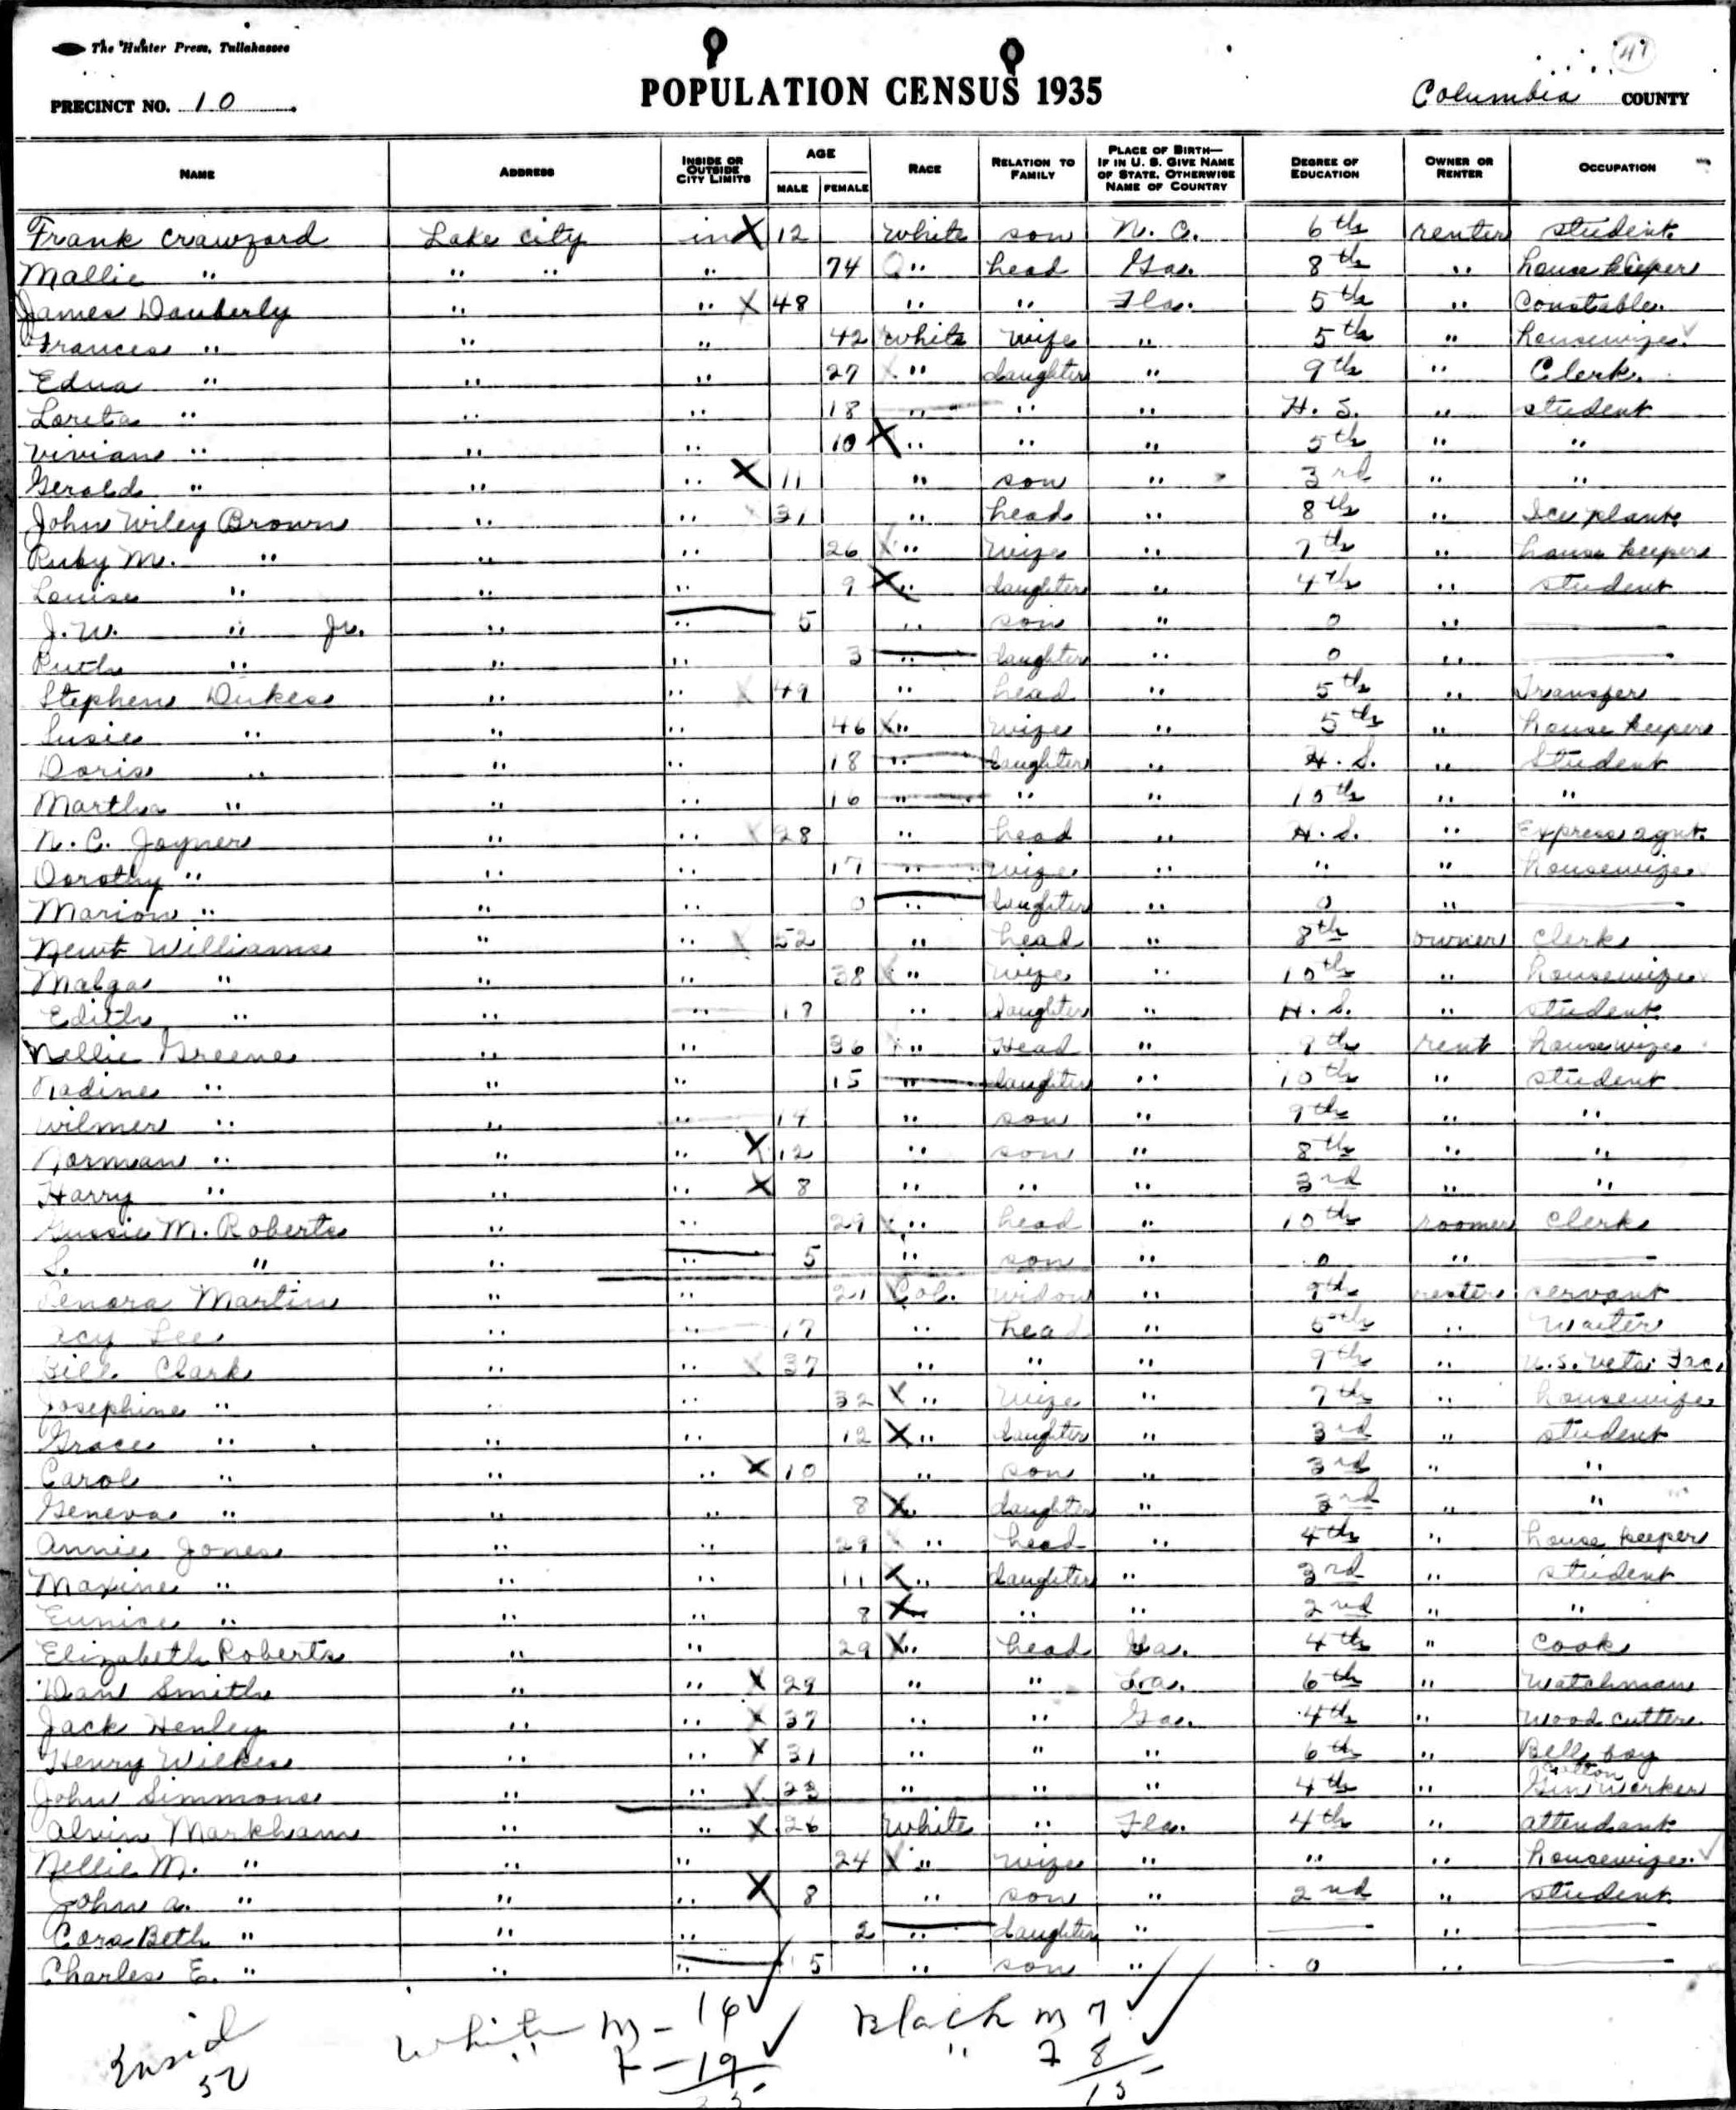 The Hunter Press, Tallahassee
47
POPULATION CENSUS 1935
PRECINCT NO. 10 Columbia COUNTY
NAME ADDRESS INSIDE OR OUTSIDE CITY LIMITS AGE MALE FEMALE RACE RELATION TO FAMILY PLACE OF BIRTH— IF IN U. S. GIVE NAME OF STATE, OTHERWISE NAME OF COUNTRY DEGREE OF EDUCATION OWNER OR RENTER OCCUPATION
Frank Crawford Lake City in X 12 white son N. C. 6th renter student
Mallie " " " " 74 " head Ga. 8th " house keeper
James Dauberly " " X 48 " " Fla. 5th " Constable
Frances " " " 42 white wife " 5th " housewife
Edna " " " 27 " daughter " 9th " Clerk
Loreta " " " 18 " " " H. S. " student
Vivian " " " 10 X " " " 5th " "
Gerald " " " X 11 " son " 3rd " "
John Wiley Brown " " 31 " head " 8th " Ice plant
Ruby M. " " " 26 " wife " 7th " house keeper
Louise " " " 9 X " daughter " 4th " student
J. W. " Jr. " " 5 " son " 0 " —
Ruth " " " 3 " daughter " 0 " —
Stephen Dukes " " X 49 " head " 5th " Transfer
Susie " " " 46 X " wife " 5th " house keeper
Doris " " " 18 " daughter " H. S. " Student
Martha " " " 16 " " " 10th " "
N. C. Joyner " " X 28 " head " H. S. " Express agnt.
Dorothy " " " 17 " wife " " " housewife
Marion " " " 0 " daughter " 0 " —
Newt Williams " " X 52 " head " 8th owner clerk
Malga " " " 38 " wife " 10th " housewife
Edith " " " 17 " daughter " H. S. " student
Nellie Greene " " 36 " Head " 9th rent housewife
Nadine " " " 15 " daughter " 10th " student
Wilmer " " " 14 " son " 9th " "
Norman " " " X 12 " son " 8th " "
Harry " " " X 8 " " " 3rd " "
Gussie M. Roberts " " 29 X " head " 10th roomer clerk
S. " " " 5 " son " 0 " —
Lenora Martin " " 21 Col. widow " 9th renter servant
Acy Lee " " 17 " head " 5th " Waiter
Bill Clark " " X 37 " " " 9th " U. S. Vets. Fac.
Josephine " " " 32 X " wife " 7th " housewife
Grace " " " 12 X " daughter " 3rd " student
Carol " " " X 10 " son " 3rd " "
Geneva " " " 8 X daughter " 3rd " "
Annie Jones " " 29 " head " 4th " house keeper
Maxine " " " 11 X " daughter " 3rd " student
Eunice " " " 8 X " " 2nd " "
Elizabeth Roberts " " 29 X " head Ga. 4th " Cook
Dan Smith " " X 29 " " La. 6th " Watchman
Jack Henley " " X 37 " " Ga. 4th " wood cutter
Henry Wilkes " " X 31 " " " 6th " Bell boy
John Simmons " " X 23 " " " 4th " Cotton Gin worker
Alvin Markham " " X 26 white " Fla. 4th " attendant
Nellie M. " " " 24 X " wife " " " housewife
John A. " " " X 8 " son " 2nd " student
Cora Beth " " " 2 " daughter " — " —
Charles E. " " " 5 " son " 0 " —
White M - 16 Black M 7
" F - 19 " F 8
15
52